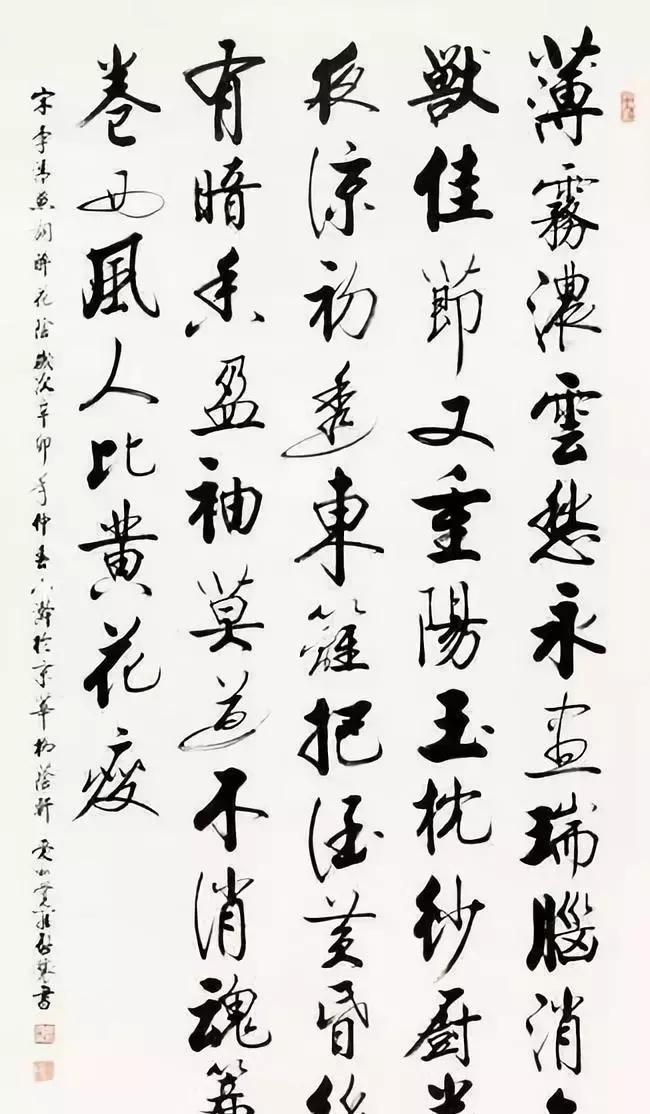 薄霧濃雲愁永晝瑞腦消
獸佳節又重陽玉枕紗廚半
夜涼初透東籬把酒黃昏後
有暗香盈袖莫道不消魂簾
卷西風人比黃花瘦
宋李清照詞醉花陰歲次辛卯年仲春於京華柳蔭軒書